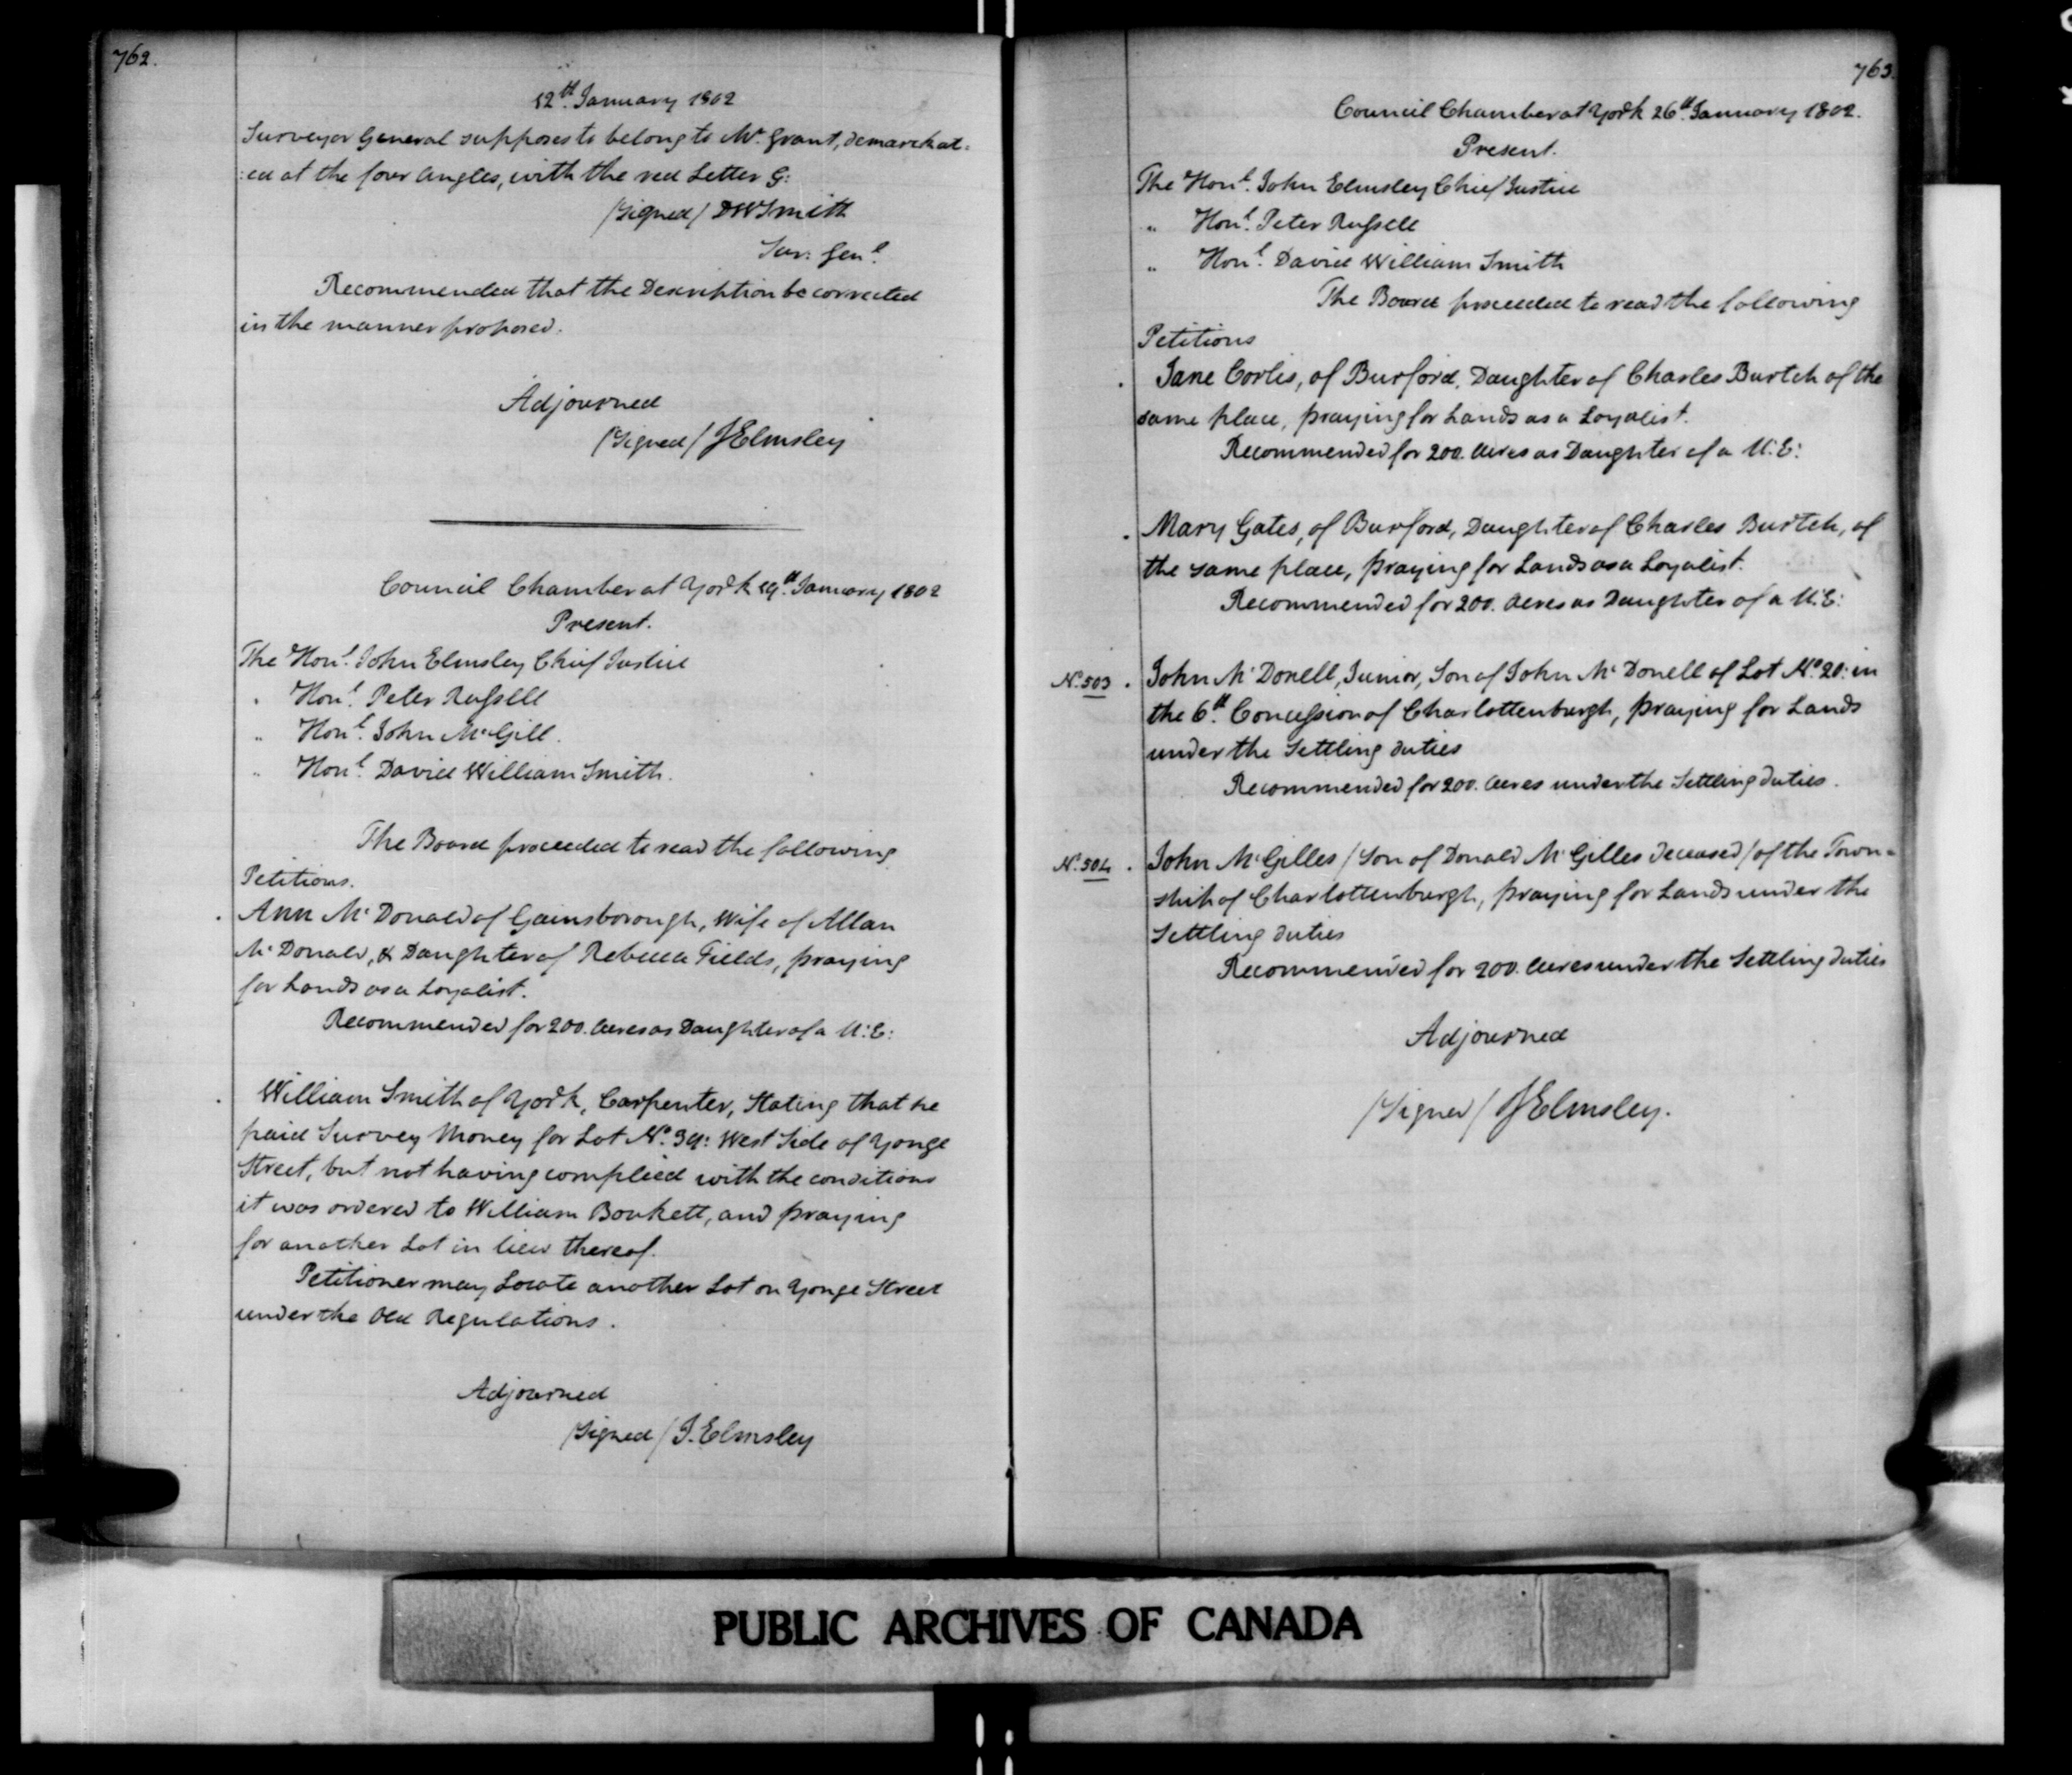 762.
12th January 1802
Surveyor General supposes to belong to Mr Grant, demarckat=
:ed at the four Angles, with the red Letter G:
/Signed/ DWSmith
Sur: Genl.
Recommended that the Description be corrected
in the manner proposed.
Adjourned
/Signed/ JElmsley
Council Chamber at York 19th January 1802
Present.
The Honl. John Elmsley Chief Justice
" Honl. Peter Russell
" Honl. John McGill.
" Honl. David William Smith.
The Board proceeded to read the following
Petitions.
Ann McDonald of Gainsborough, Wife of Allan
McDonald, & Daughter of Rebecca Fields, praying
for Lands as a Loyalist.
Recommended for 200. Acres as Daughter of a U:E:
William Smith of York, Carpenter, Stating that he
paid Survey Money for Lot No. 39: West Side of Yonge
Street, but not having complied with the conditions
it was ordered to William Bonkett, and praying
for another Lot in lieu thereof.
Petitioner may Locate another Lot on Yonge Street
under the Old Regulations.
Adjourned
/Signed/ J. Elmsley
763.
Council Chamber at York 26th January 1802.
Present.
The Honl. John Elmsley Chief Justice
" Honl. Peter Russell
" Honl. David William Smith
The Board proceeded to read the following
Petitions
Jane Corlis, of Burford, Daughter of Charles Burtch of the
same place, praying for Lands as a Loyalist.
Recommended for 200. Acres as Daughter of a U:E:
Mary Gates, of Burford, Daughter of Charles Burtch, of
the same place, praying for Lands as a Loyalist.
Recommended for 200. Acres as Daughter of a U:E:
No. 503. John McDonell, Junior, Son of John McDonell of Lot No. 20: in
the 6th Concession of Charlottenburgh, praying for Lands
under the Settling duties
Recommended for 200. Acres under the Settling duties.
No. 504. John McGilles /Son of Donald McGilles deceased/ of the Town=
ship of Charlottenburgh, praying for Lands under the
Settling duties
Recommended for 200. Acres under the Settling duties
Adjourned
/Signed/ JElmsley.
PUBLIC ARCHIVES OF CANADA